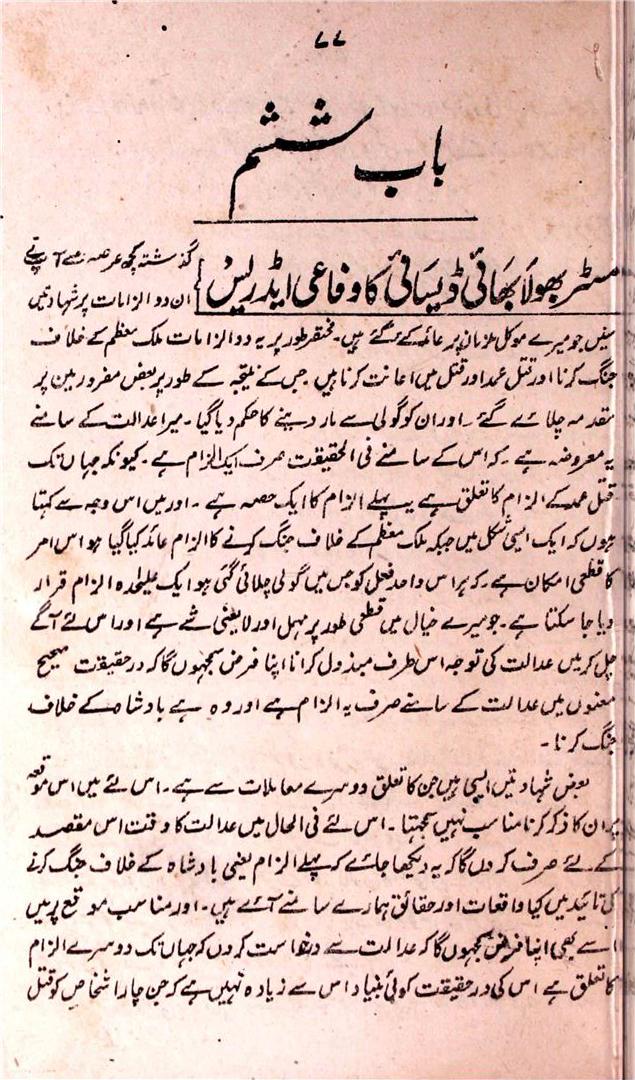 ۷۷
باب ششم
مسٹر بھولا بھائی ڈیسائی کا وفاعی ایڈریس
گذشتہ کچھ عرصہ سے آپ نے
ان دو الزامات پر شہادتیں
سنیں جو میرے موکل ملزمان پر عائد کئے گئے ہیں۔ مختصر طور پر یہ دو الزامات ملک معظم کے خلاف
جنگ کرنا اور قتل عمد اور قتل میں اعانت کرنا ہیں۔ جس کے نتیجہ کے طور پر بعض مفرورین پر
مقدمہ چلائے گئے۔ اور ان کو گولی سے مار دینے کا حکم دیا گیا۔ میرا عدالت کے سامنے
یہ معروضہ ہے۔ کہ اس کے سامنے فی الحقیقت صرف ایک الزام ہے۔ کیونکہ جہاں تک
قتل عمد کے الزام کا تعلق ہے یہ پہلے الزام کا ایک حصہ ہے۔ اور میں اس وجہ سے کہتا
ہوں کہ ایک ایسی شکل میں جبکہ ملک معظم کے خلاف جنگ کرنے کا الزام عائد کیا گیا ہو اس امر
کا قطعی امکان ہے۔ کہ ہر اس واحد فعل کو جس میں گولی چلائی گئی ہو ایک علیحدہ الزام قرار
دیا جا سکتا ہے۔ جو میرے خیال میں قطعی طور پر مہمل اور لا یعنی شے ہے اور اس لئے آگے
چل کر میں عدالت کی توجہ اس طرف مبذول کرانا اپنا فرض سمجہوں گا کہ در حقیقت صحیح
معنوں میں عدالت کے سامنے صرف یہ الزام ہے اور وہ ہے بادشاہ کے خلاف
جنگ کرنا۔
بعض شہادتیں ایسی ہیں جن کا تعلق دوسرے معاملات سے ہے۔ اس لئے میں اس موقعہ
پر ان کا ذکر کرنا مناسب نہیں سمجہتا۔ اس لئے فی الحال میں عدالت کا وقت اس مقصد
کے لئے صرف کروں گا کہ یہ دیکھا جائے کہ پہلے الزام یعنی بادشاہ کے خلاف جنگ کرنے
کی تائید میں کیا واقعات اور حقائق ہمارے سامنے آئے ہیں۔ اور مناسب موقع پر میں
اسے بھی اپنا فرض سمجہوں گا کہ عدالت سے درخواست کروں کہ جہاں تک دوسرے الزام
کا تعلق ہے اس کی در حقیقت کوئی بنیاد اس سے زیادہ نہیں ہے کہ جن چار اشخاص کو قتل